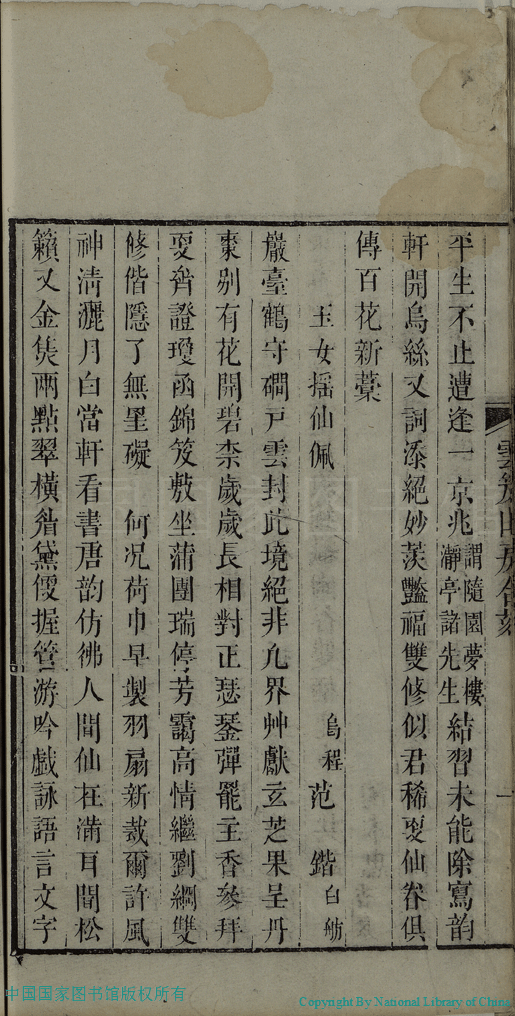 平生不止遭逢一京兆謂隨園夢樓瀞亭諸先生結習未能除寫韵
軒開烏絲又詞添絕妙羨豔福雙修似君稀更仙眷俱
傳百花新藁
玉女搖仙佩　烏程范鍇白舫
巖臺鶴守磵戸雲封此境絕非凡界艸獻玄芝果呈丹
棗別有花開碧柰歲歲長相對正瑟琴彈罷玉香參拜
更齊證瓊函錦笈敷坐蒲團瑞停芳靄高情繼劉綱雙
修偕隱了無罣礙　何況荷巾早製羽扇新裁爾許風
神淸灑月白當軒看書唐韵仿彿人間仙在滿耳閒松
籟又金猊兩點翠橫眉黛僾握管游吟戲詠語言文字
雲　山房合刻
一
中国国家图书馆版权所有
Copyright By National Library of China